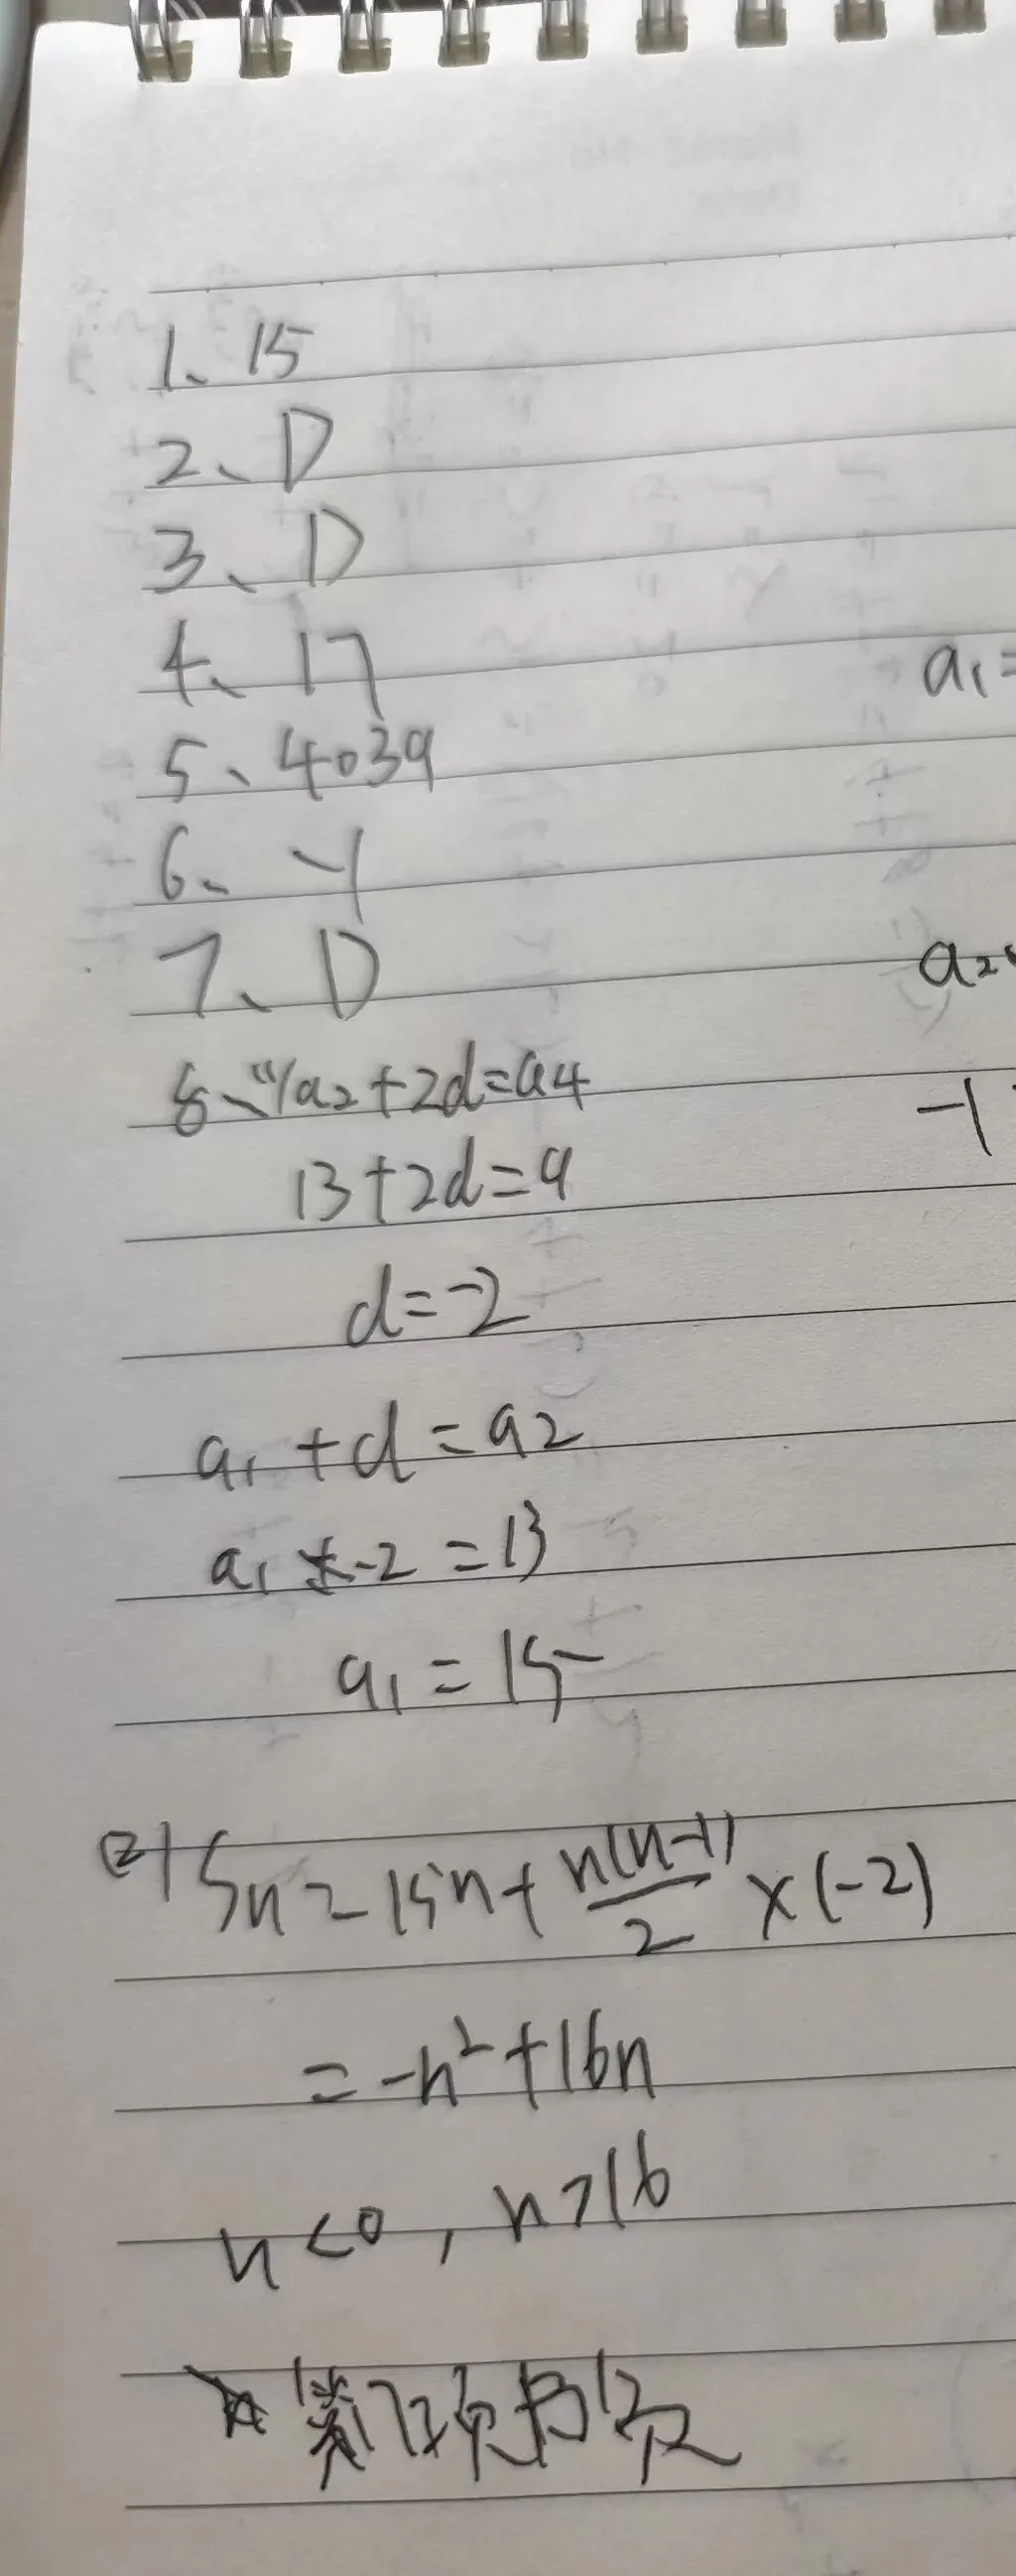 1、15
2、D
3、D
4、17
5、4039
6、-1
7、D
8、(1)a₂+2d=a4
13+2d=9
d=-2
a₁+d=a2
a₁+-2=13
a₁=15
(2) Sn=15n+n(n-1)/2×(-2)
=-n²+16n
n<0,n>16
第17项
a₁=
a₂
-1